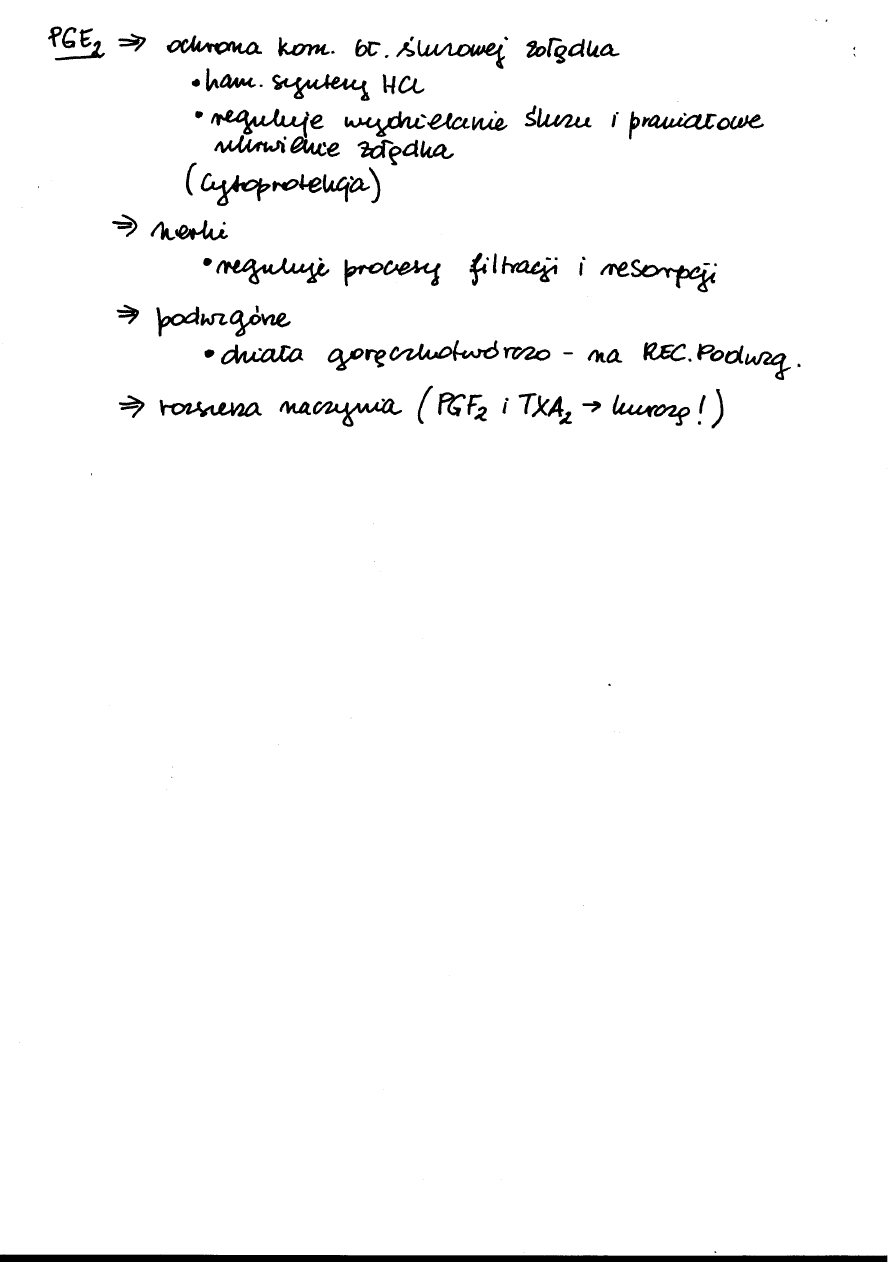 PGE₂ ⇒ ochrona kom. bł. śluzowej żołądka
• ham. syntezy HCl
• reguluje wydzielanie śluzu i prawidłowe
ukrwienie żołądka
(cytoprotekcja)
⇒ nerki
• reguluje procesy filtracji i resorpcji
⇒ podwzgórze
• działa gorączkotwórczo - na REC. Podwzg.
⇒ rozszerza naczynia (PGF₂ i TXA₂ → kurczą!)